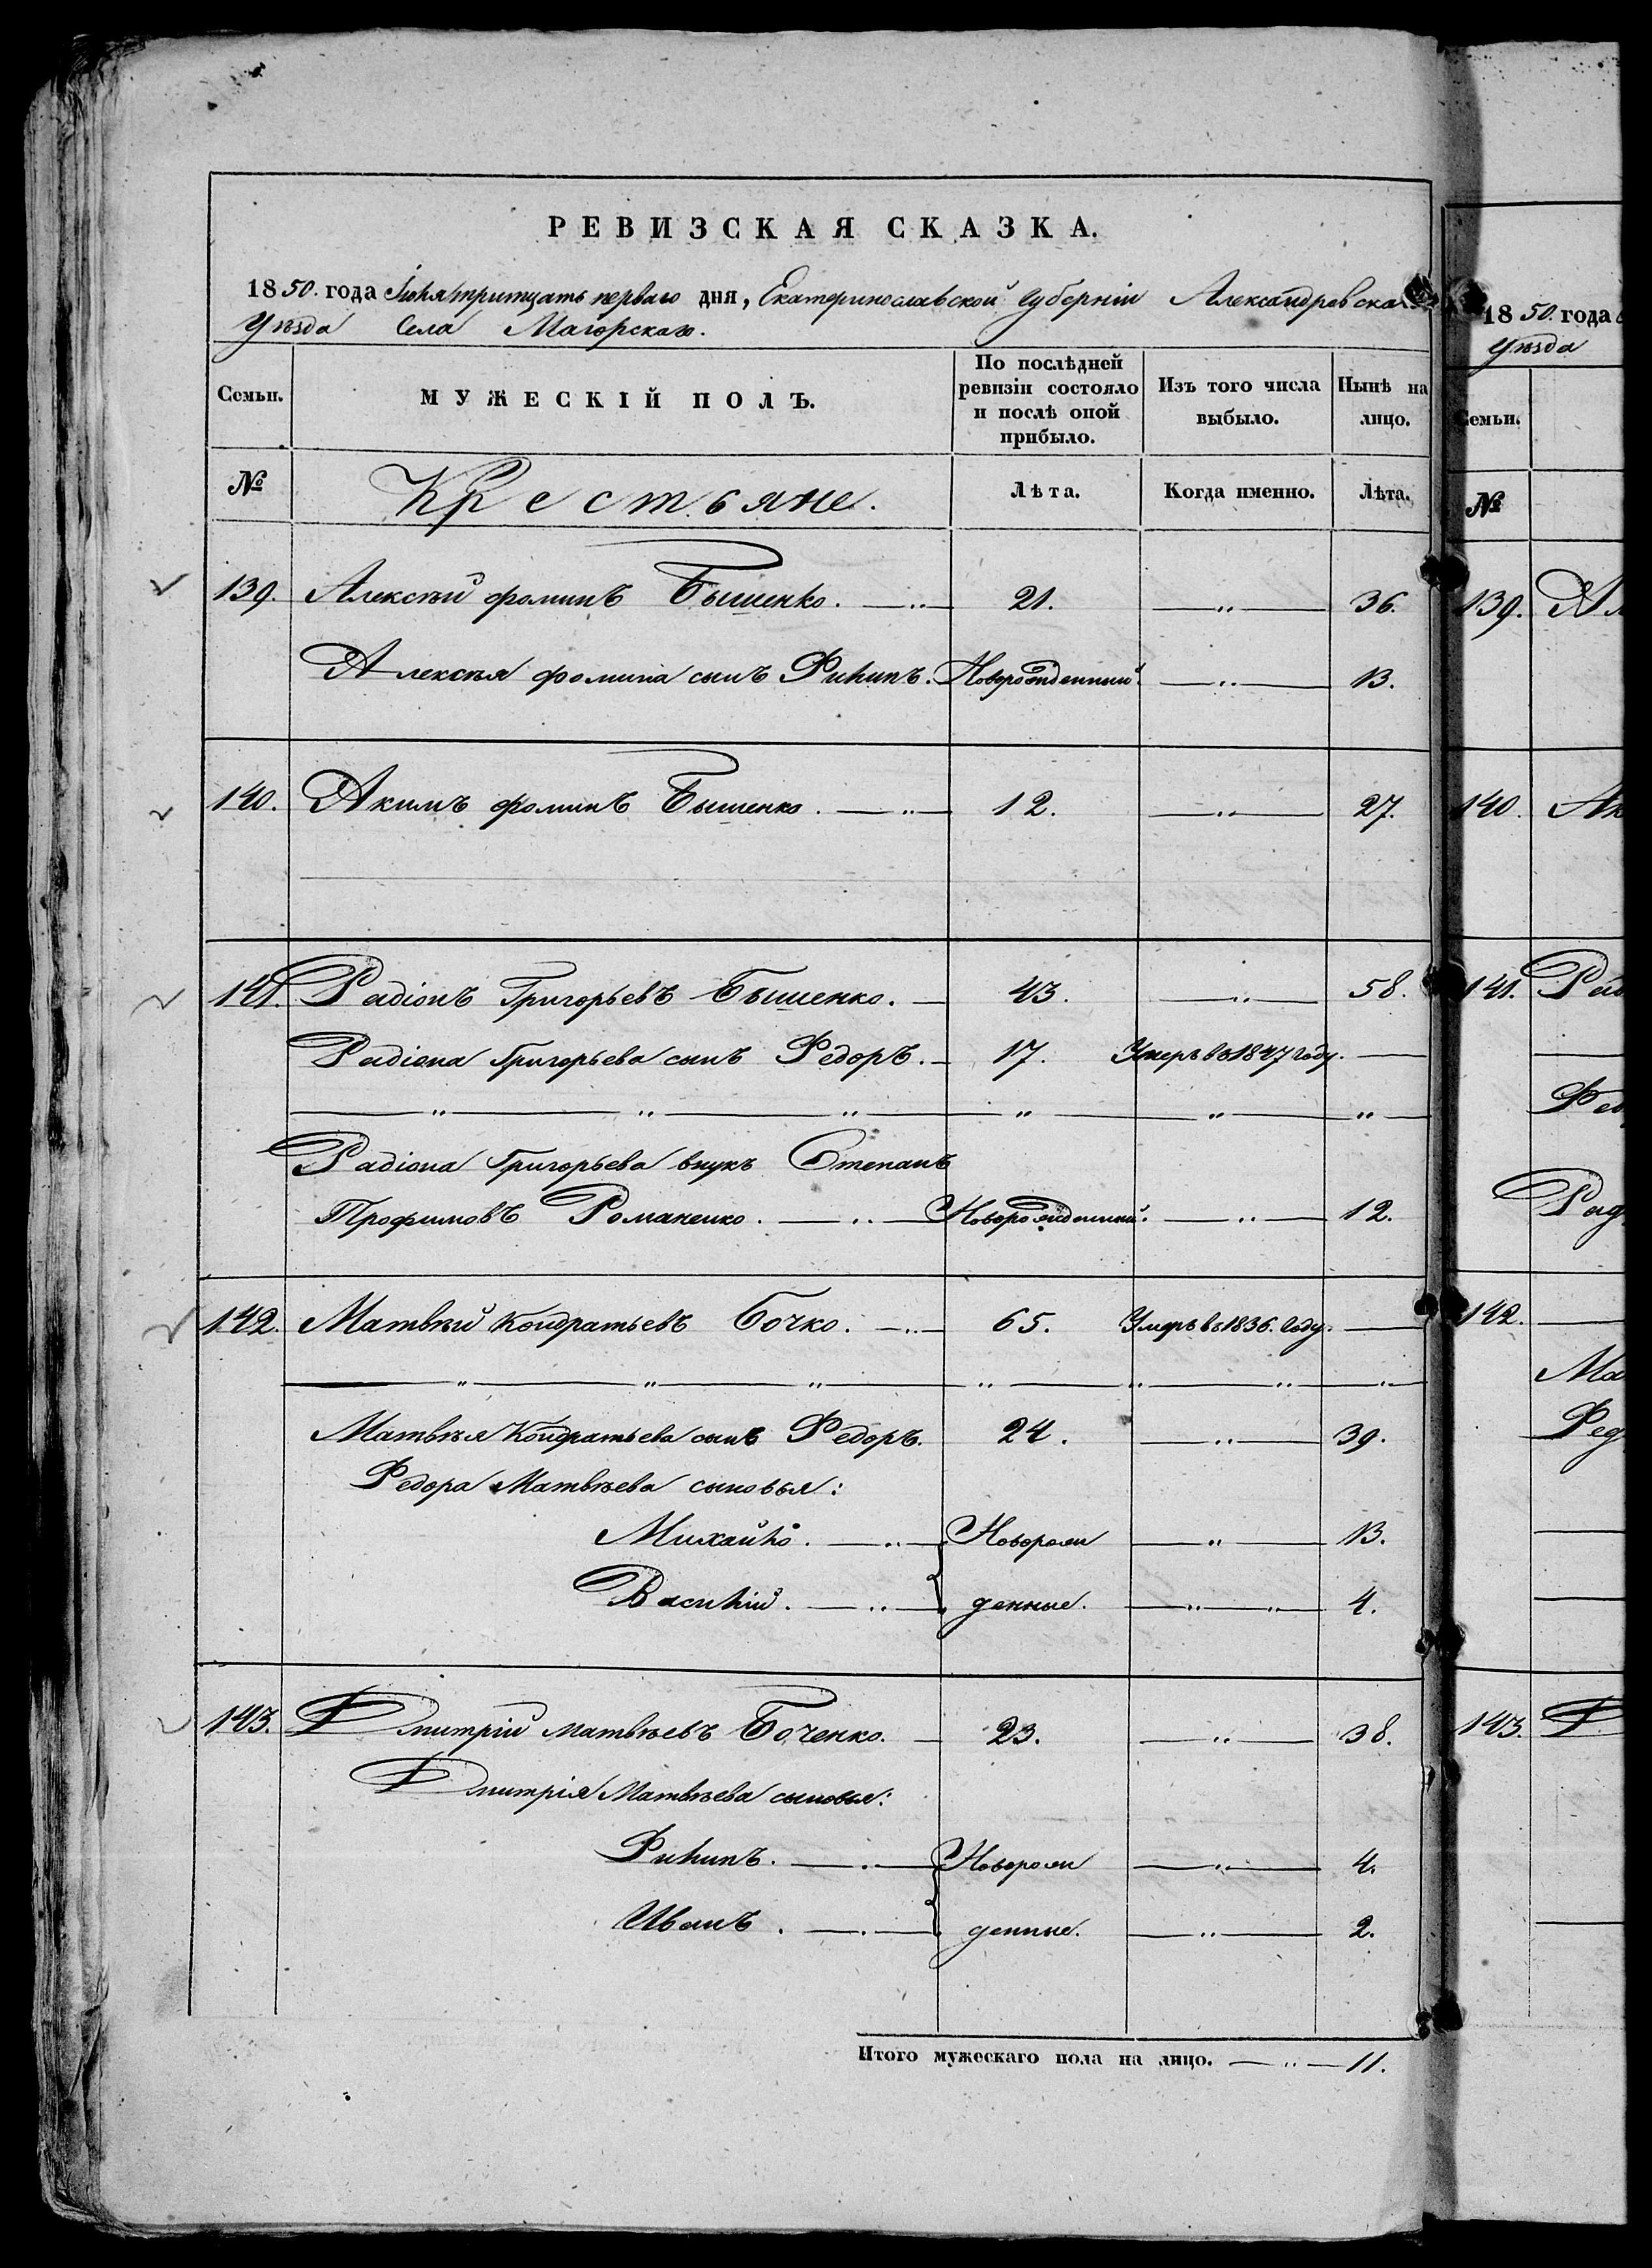 РЕВИЗСКАЯ СКАЗКА.
1850. года Іюля тритцать перваго дня, Екатеринославской Губерніи Александровскаго
Уѣзда Села Магорскаго.
Семьи. МУЖЕСКІЙ ПОЛЪ. По послѣдней ревизіи состояло и послѣ оной прибыло. Изъ того числа выбыло. Нынѣ на лицо.
№ Крестьяне. Лѣта. Когда именно. Лѣта.
139. Алексѣй Фоминъ Бышенко. — „ — 21. — „ — 36.
Алексѣя Фомина сынъ Филипъ. Новорожденный. — „ — 13.
140. Акимъ Фоминъ Бышенко. — „ — 12. — „ — 27.
141. Радіонъ Григорьевъ Бышенко. — 43. — „ — 58.
Радіона Григорьева сынъ Федоръ. — 17. Умеръ въ 1847 году. —
— „ — „ — „ — „ — „ — „ —
Радіона Григорьева внукъ Степанъ
Трофимовъ Романенко. — „ — Новорожденный. — „ — 12.
142. Матвѣй Кондратьевъ Бочко. — „ — 65. Умеръ въ 1836. Году. —
— „ — „ — „ — „ — „ — „ — „ —
Матвѣя Кондратьева сынъ Федоръ. 24. — „ — 39.
Федора Матвѣева сыновья:
Михайло. — „ — Новорож — „ — 13.
Василій. — „ — денные. — „ — „ — 4.
143. Дмитрій Матвѣевъ Боченко. — 23. — „ — 38.
Дмитрія Матвѣева сыновья:
Филипъ. — „ — Новорож — „ — 4.
Иванъ. — „ — денные. — „ — 2.
Итого мужескаго пола на лицо. — „ — 11.
1850. года
Уѣзда
Семьи.
№
139. Ал
140. Ак
141. Рад
Фед
Рад
142. —
Ма
Фед
143. Д